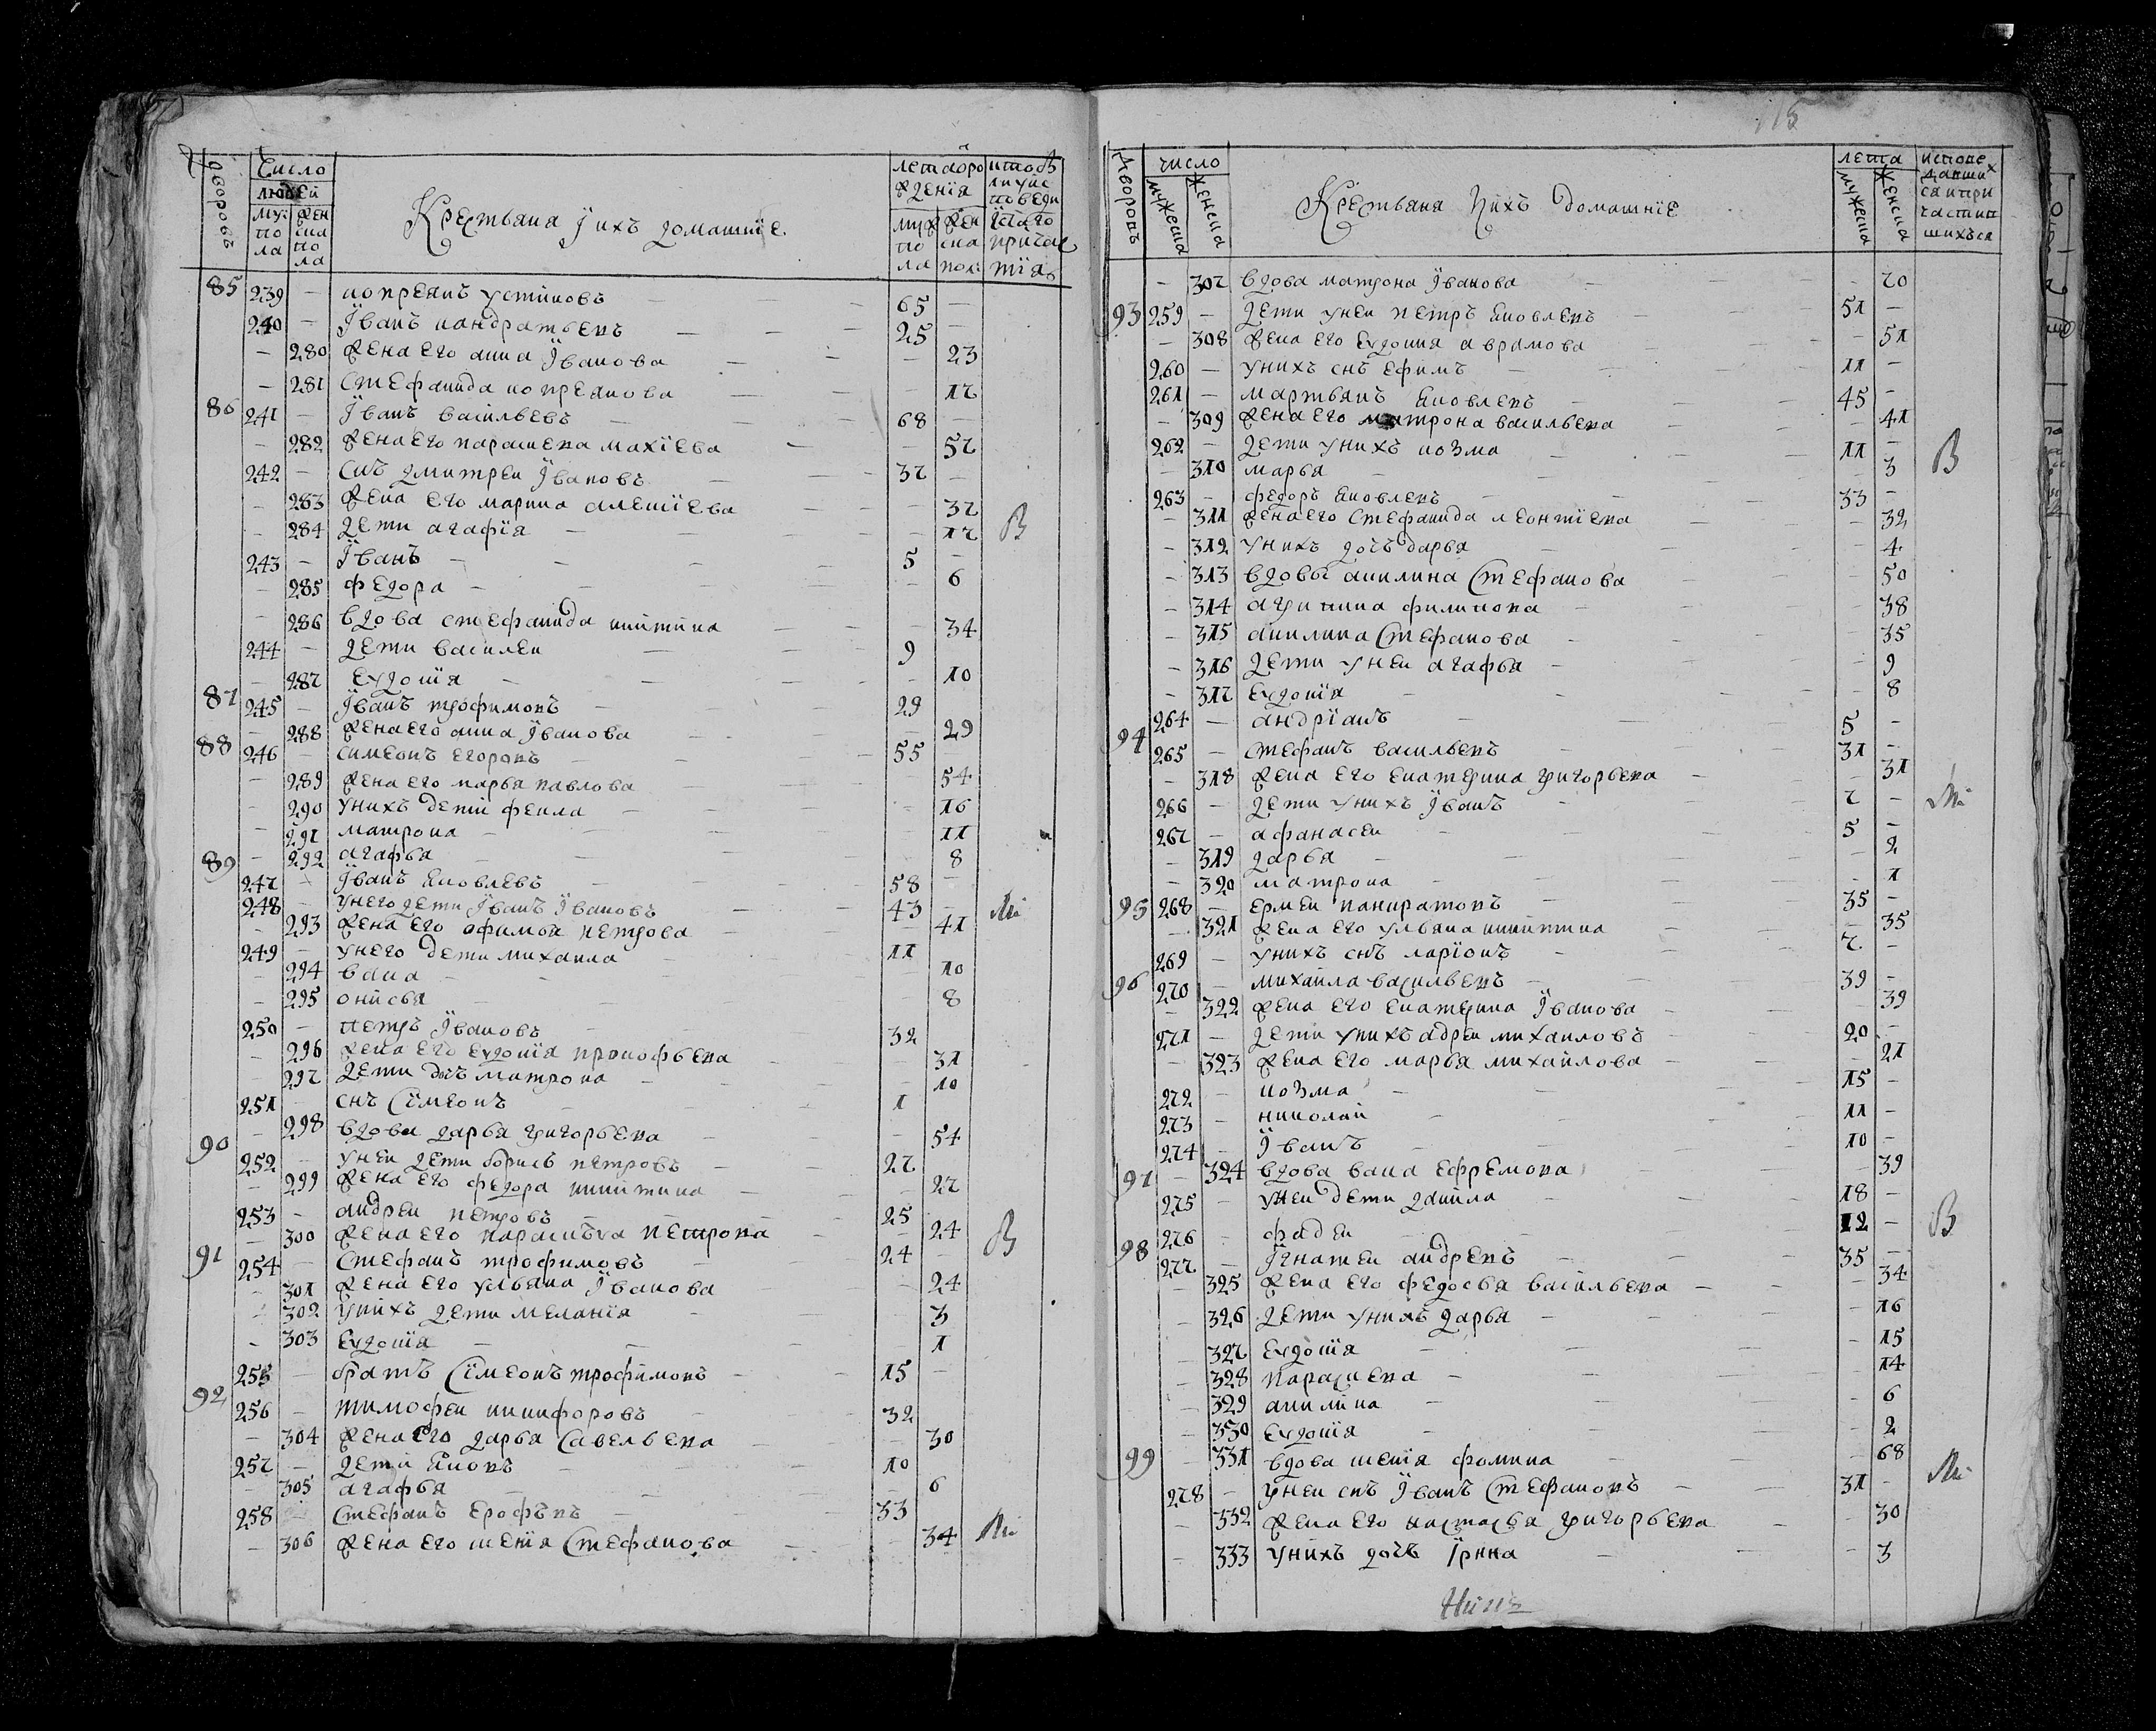 115
Дворовъ
Число
людей
муж пола
женска пола
Крестьяна ї ихъ домашнїе
лета от рожденїя
муж пола
женска пола
85 239 - копреянъ устиновъ 65 -
240 - їванъ кандратьевъ 25 -
- 280 жена его анна їванова - 23
- 281 стефанида копреянова - 17
86 241 - їванъ васильевъ 68 -
- 282 жена его параскева махїева - 57
242 - снъ дмитреи ївановъ 37 -
- 283 жена его марина алексїева - 37
- 284 дети агафїя - 17 В
243 - їванъ 5 -
- 285 федора - 6
- 286 вдова стефанида никитина - 34
244 - дети василеи 9 -
- 287 евдокїя - 10
87 245 - їванъ трофимовъ 29 -
- 288 жена его анна їванова - 29
88 246 - симеонъ егоровъ 55 -
- 289 жена его марья павлова - 54
- 290 у нихъ дети фекла - 16
- 291 матрона - 11
- 292 агафья - 8
89 247 - їванъ яковлевъ 58 -
248 - у него дети їванъ ївановъ 43 - Мі
- 293 жена его афимья петрова - 41
249 - у него дети михаила 11 -
- 294 васа - 10
- 295 онисья - 8
250 - петръ ївановъ 32 -
- 296 жена его евдокїя прокофьева - 31
- 297 дети дочь матрона - 10
251 - снъ сїмеонъ 1 -
90 - 298 вдова дарья григорьева - 54
252 - у неи дети борисъ петровъ 27 -
- 299 жена его федора никитина - 27
253 - андреи петровъ 25 -
- 300 жена его параскева петрова - 24 В
91 254 - стефанъ трофимовъ 24 -
- 301 жена его ульяна їванова - 24
- 302 у нихъ дети меланїя - 3
- 303 евдокїя - 1
255 - братъ сїмеонъ трофимовъ 15 -
92 256 - тимофеи никифоровъ 32 -
- 304 жена его дарья савельева - 30
257 - дети яковъ 10 -
- 305 агафья - 6
258 - стефанъ ерофѣевъ 33 -
- 306 жена его ксенїя стефанова - 34 Мі
Дворовъ
число
мужеска
женска
Крестьяна ї ихъ домашнїе
лета
мужеска
женска
исповедавших ся и причастившихъся
- 307 вдова матрона їванова - 70
93 259 - дети у неи петръ яковлевъ 51 -
- 308 жена его евдокия аврамова - 51
260 - у нихъ снъ ефимъ 11 -
261 - мартьянъ яковлевъ 45 -
- 309 жена его матрона васильева - 41
262 - дети у нихъ козма 11 -
- 310 марья - 3 В
263 - федоръ яковлевъ 33 -
- 311 жена его стефанида леонтїева - 32
- 312 у нихъ дочь дарья - 4
- 313 вдовы акилина стефанова - 50
- 314 агрипина филипова - 38
- 315 акилина стефанова - 35
- 316 дети у неи агафья - 9
- 317 евдокїя - 8
264 - андрїанъ 5 -
94 265 - стефанъ васильевъ 31 -
- 318 жена его екатерина григорьева - 31
266 - дети у нихъ їванъ 7 - Мі
267 - афанасеи 5 -
- 319 дарья - 2
- 320 матрона - 1
95 268 - ермеи панкратовъ 35 -
- 321 жена его ульяна никитина - 35
269 - у нихъ снъ ларїонъ 7 -
96 270 - михаила васильевъ 39 -
- 322 жена его екатерина їванова - 39
271 - дети у нихъ адреи михаиловъ 20 -
- 323 жена его марья михаилова - 21
272 - козма 15 -
273 - николай 11 -
274 - їванъ 10 -
97 - 324 вдова васа ефремова - 39
275 - у неи дети данила 18 -
276 - фадеи 12 - В
98 277 - їгнатеи андреевъ 35 -
- 325 жена его федосья васильева - 34
- 326 дети у нихъ дарья - 16
- 327 евдокїя - 15
- 328 параскева - 14
- 329 акилина - 6
- 330 евдокїя - 2
99 - 331 вдова ксенїя фомина - 68
278 - у неи снъ їванъ стефановъ 31 - Мі
- 332 жена его настасья григорьева - 30
- 333 у нихъ дочь їрина - 3